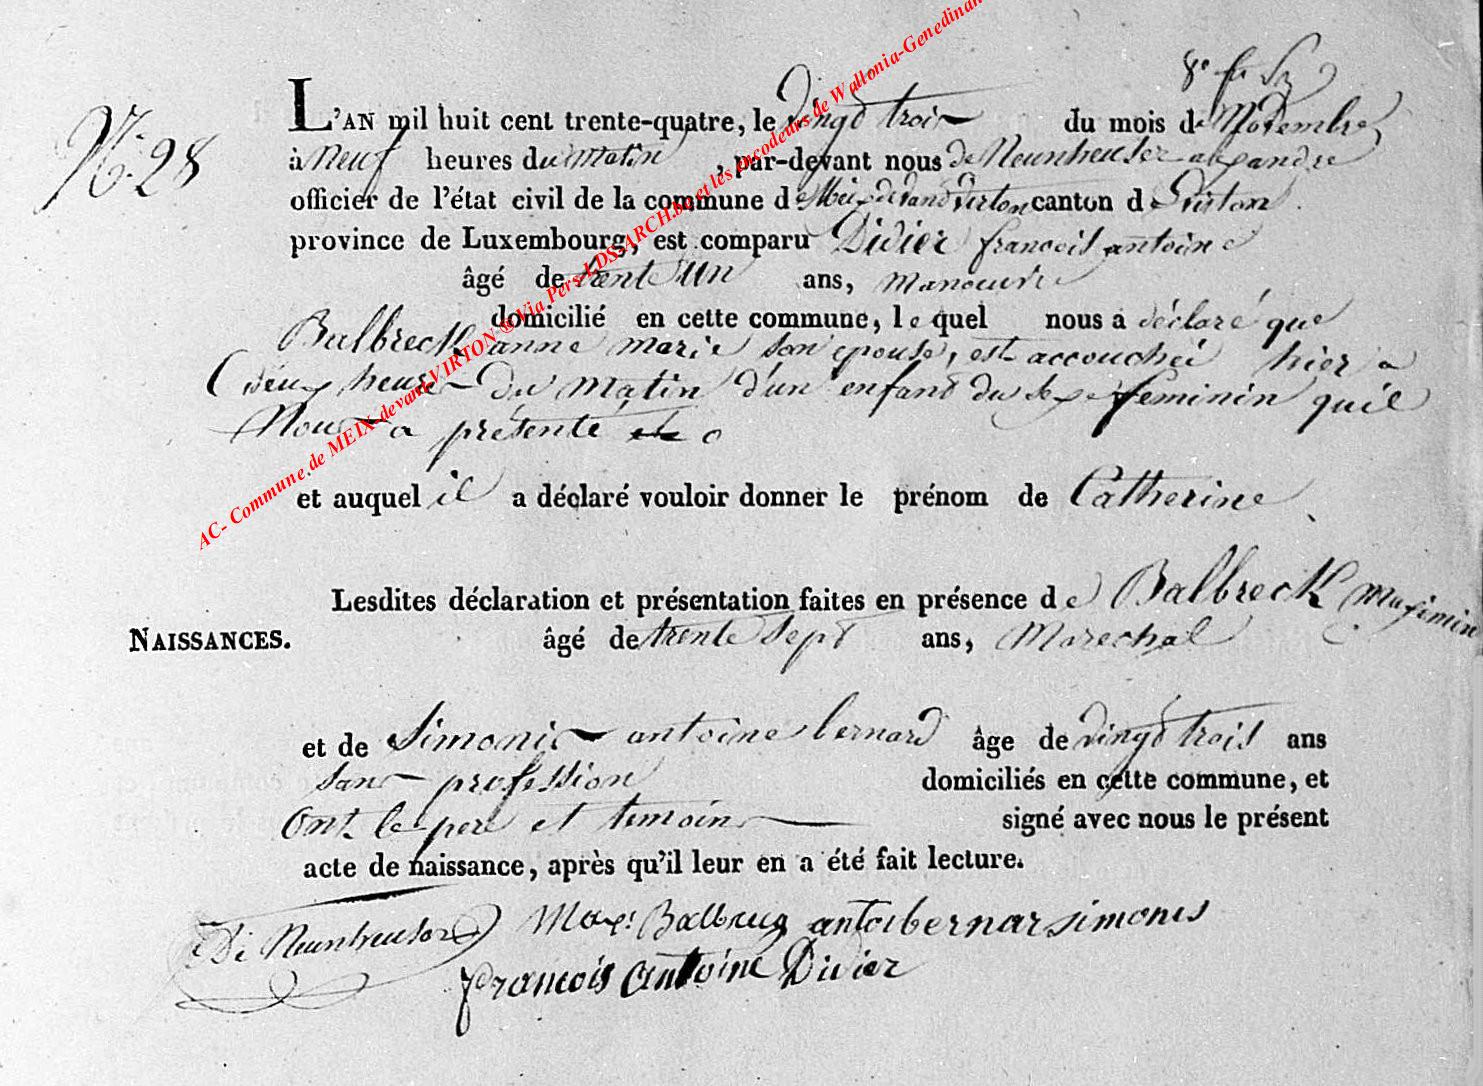 8e
N° 28
L'AN mil huit cent trente-quatre, le vingt trois du mois de Novembre
à Neuf heures du matin, par-devant nous de Neunheuser alexandre
officier de l'état civil de la commune de Meix devand virton canton de Virton
province de Luxembourg, est comparu Didier francois antoine
âgé de trent un ans, manouvre
domicilié en cette commune, lequel nous a déclaré que
Balbreck anne marie son epouse, est accouchéé hier a
deux heures du matin d'un enfand du sexe feminin quil
Nous a présenté
et auquel il a déclaré vouloir donner le prénom de Catherine
Lesdites déclaration et présentation faites en présence de Balbreck Maximin
NAISSANCES. âgé de trente sept ans, Marechal
et de Simonis antoine bernard âge de vingt trois ans
sans profession domiciliés en cette commune, et
Ont le pere et temoins signé avec nous le présent
acte de naissance, après qu'il leur en a été fait lecture.
De Neunheuser Max: Balbreug antoibernarsimonis
francois antoine Didier
AC- Commune de MEIX devant VIRTON ® Via Pers-LDS-ARCH.be et les encodeurs de Wallonia-Genedinan